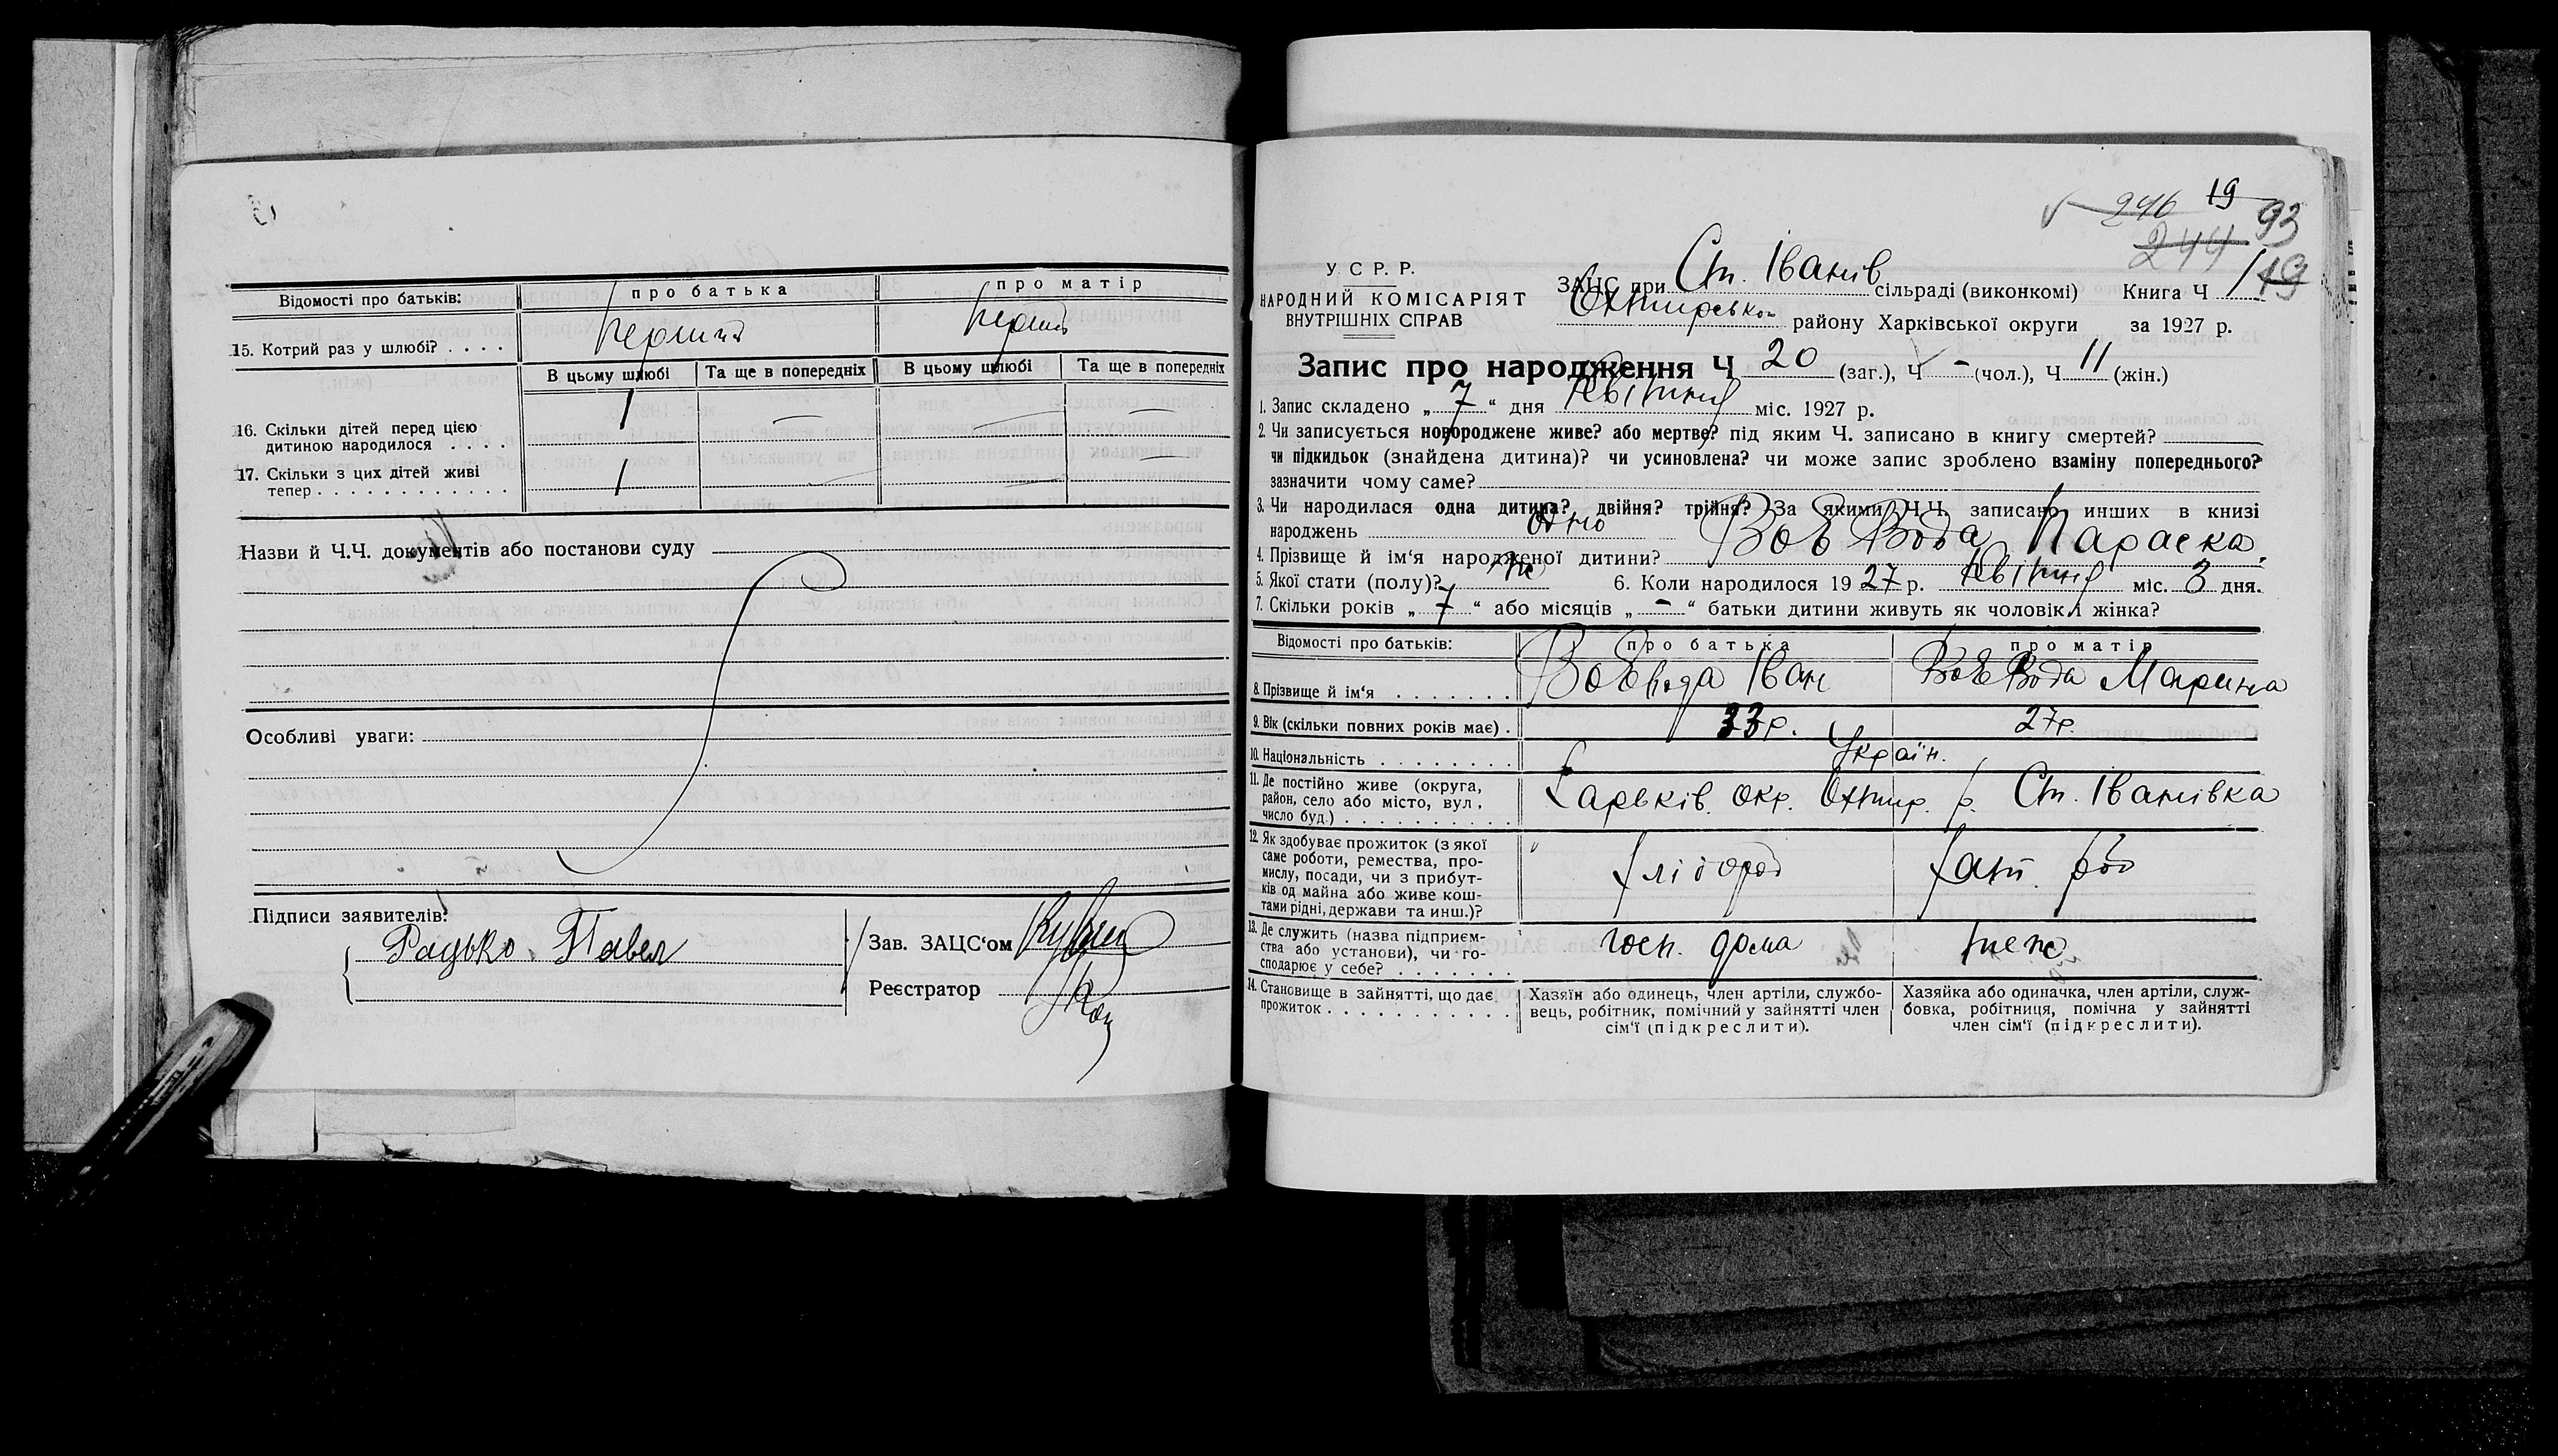 Відомості про батьків: про батька про матір
15. Котрий раз у шлюбі? . . . . перший перший
В цьому шлюбі Та ще в попередніх В цьому шлюбі Та ще в попередніх
16. Скільки дітей перед цією
дитиною народилося . . . 1 — — —
17. Скільки з цих дітей живі
тепер . . . . . . . . . . . . 1 — — —
Назви й Ч.Ч. документів або постанови суду
Особливі уваги:
Підписи заявителів:
Радько Павел
Зав. ЗАЦС‘ом
Реєстратор
246 19
93
244
У. С. Р. Р.
НАРОДНИЙ КОМІСАРІЯТ
ВНУТРІШНІХ СПРАВ
ЗАЦС при Ст. Іванів сільраді (виконкомі) Книга Ч 1 19
Охтирськои району Харківської округи за 1927 р.
Запис про народження Ч 20 (заг.), Ч - (чол.), Ч 11 (жін.)
1. Запис складено „ 7 “ дня Квітня міс. 1927 р.
2. Чи записується новороджене живе? або мертве? під яким Ч. записано в книгу смертей?
чи підкидьок (знайдена дитина)? чи усиновлена? чи може запис зроблено взаміну попереднього?
зазначити чому саме?
3. Чи народилася одна дитина? двійня? трійня? За якими Ч.Ч. записано инших в книзі
народжень одно
4. Прізвище й ім‘я народженої дитини? ВоєВода Параска.
5. Якої стати (полу)? жін 6. Коли народилося 19 27 р. Квітня міс. 3 дня.
7. Скільки років „ 7 “ або місяців „ - “ батьки дитини живуть як чоловік і жінка?
Відомості про батьків: про батька про матір
8. Прізвище й ім‘я . . . . . . . ВоЄвода Іван ВоєВода Марина
9. Вік (скільки повних років має) . 33 р. 27 р.
10. Національність . . . . . . . . Україн.
11. Де постійно живе (округа,
район, село або місто, вул.,
число буд.) . . . . . . . . . . Харьків. окр. Охтир. р. Ст. Іванівка
12. Як здобуває прожиток (з якої
саме роботи, ремества, про-
мислу, посади, чи з прибут-
ків од майна або живе кош-
тами рідні, держави та инш.)?
хлібороб хатн. роб
13. Де служить (назва підприєм-
ства або установи), чи го-
сподарює у себе? . . . . . . .
госп. дома теж
14. Становище в зайнятті, що дає
прожиток . . . . . . . . . . . .
Хазяїн або одинець, член артіли, службо-
вець, робітник, помічний у зайнятті член
сім‘ї (підкреслити).
Хазяйка або одиначка, член артіли, служ-
бовка, робітниця, помічна у зайнятті
член сім‘ї (підкреслити).